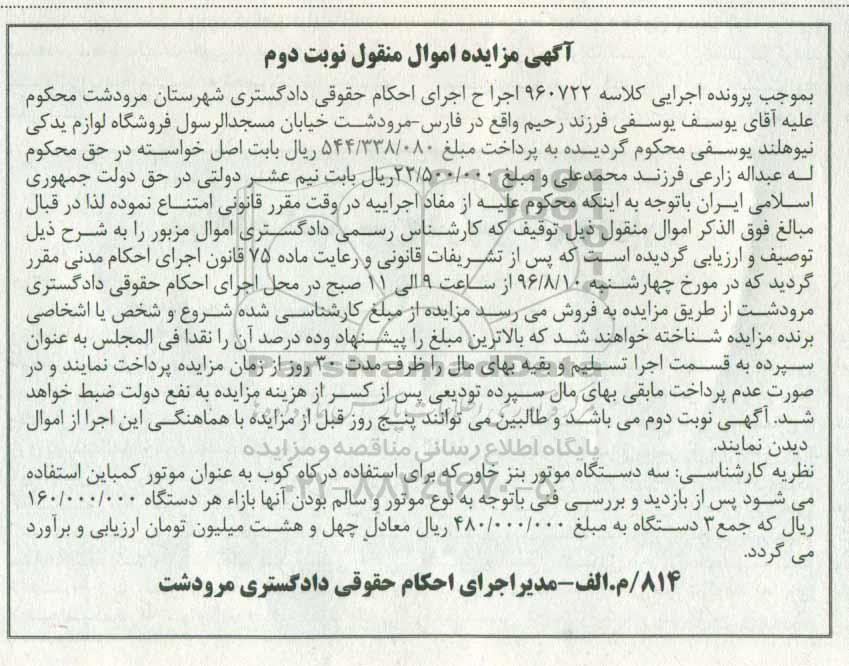 آگهی مزایده اموال منقول نوبت دوم
بموجب پرونده اجرایی کلاسه ۹۶۰۷۲۲ اجرا ح اجرای احکام حقوقی دادگستری شهرستان مرودشت محکوم
علیه آقای یوسف یوسفی فرزند رحیم واقع در فارس-مرودشت خیابان مسجدالرسول فروشگاه لوازم یدکی
نیوهلند یوسفی محکوم گردیده به پرداخت مبلغ ۵۴۴/۳۳۸/۰۸۰ ریال بابت اصل خواسته در حق محکوم
له عبداله زارعی فرزند محمدعلی و مبلغ ۲۲/۵۰۰/۰۰۰ریال بابت نیم عشر دولتی در حق دولت جمهوری
اسلامی ایران باتوجه به اینکه محکوم علیه از مفاد اجراییه در وقت مقرر قانونی امتناع نموده لذا در قبال
مبالغ فوق الذکر اموال منقول ذیل توقیف که کارشناس رسمی دادگستری اموال مزبور را به شرح ذیل
توصیف و ارزیابی گردیده است که پس از تشریفات قانونی و رعایت ماده ۷۵ قانون اجرای احکام مدنی مقرر
گردید که در مورخ چهارشنبه ۹۶/۸/۱۰ از ساعت ۹ الی ۱۱ صبح در محل اجرای احکام حقوقی دادگستری
مرودشت از طریق مزایده به فروش می رسد مزایده از مبلغ کارشناسی شده شروع و شخص یا اشخاصی
برنده مزایده شناخته خواهند شد که بالاترین مبلغ را پیشنهاد وده درصد آن را نقدا فی المجلس به عنوان
سپرده به قسمت اجرا تسلیم و بقیه بهای مال را ظرف مدت ۳۰ روز از زمان مزایده پرداخت نمایند و در
صورت عدم پرداخت مابقی بهای مال سپرده تودیعی پس از کسر از هزینه مزایده به نفع دولت ضبط خواهد
شد. آگهی نوبت دوم می باشد و طالبین می توانند پنج روز قبل از مزایده با هماهنگی این اجرا از اموال
دیدن نمایند.
نظریه کارشناسی: سه دستگاه موتور بنز خاور که برای استفاده درکاه کوب به عنوان موتور کمباین استفاده
می شود پس از بازدید و بررسی فنی باتوجه به نوع موتور و سالم بودن آنها بازاء هر دستگاه ۱۶۰/۰۰۰/۰۰۰
ریال که جمع۳ دستگاه به مبلغ ۴۸۰/۰۰۰/۰۰۰ ریال معادل چهل و هشت میلیون تومان ارزیابی و برآورد
می گردد.
۸۱۴/م.الف-مدیراجرای احکام حقوقی دادگستری مرودشت
ParsNamadData
پایگاه اطلاع رسانی مناقصه ومزایده